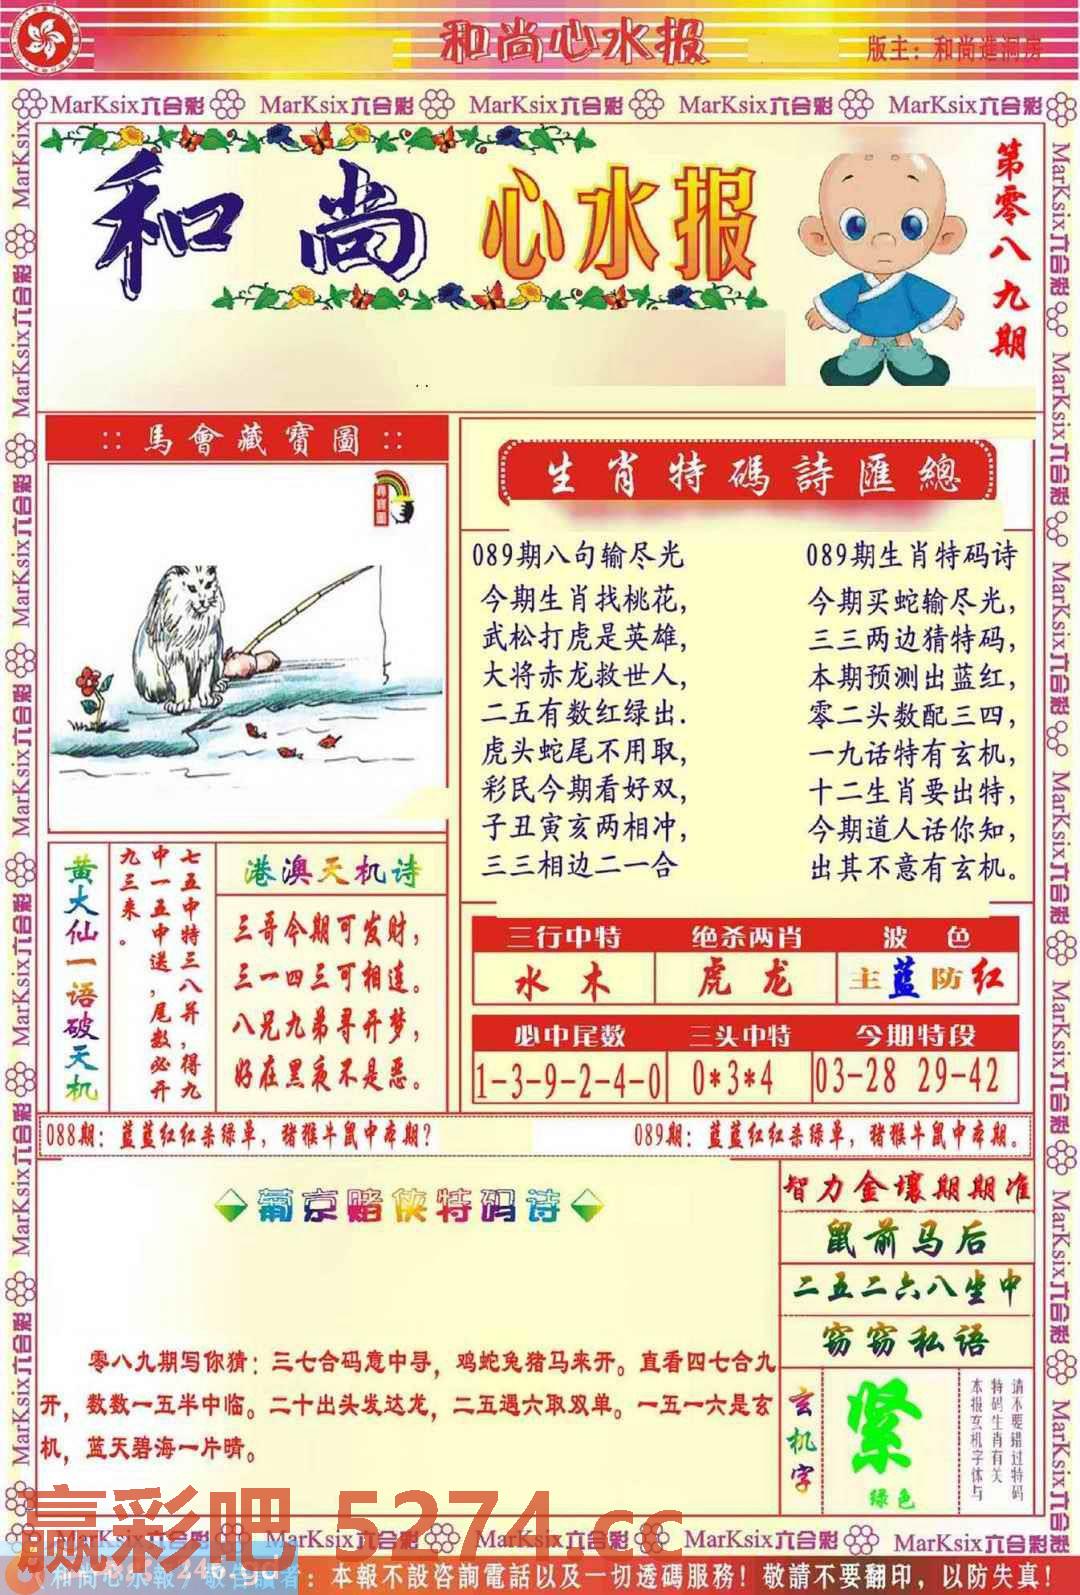 和尚心水报
版主：和尚進洞房
MarKsix六合彩 MarKsix六合彩 MarKsix六合彩 MarKsix六合彩 MarKsix六合彩
和尚心水报
第零八九期
:: 馬會藏寶圖 ::
尋寶圖
生肖特碼詩匯總
089期八句输尽光
今期生肖找桃花，
武松打虎是英雄，
大将赤龙救世人，
二五有数红绿出.
虎头蛇尾不用取，
彩民今期看好双，
子丑寅亥两相冲，
三三相边二一合
089期生肖特码诗
今期买蛇输尽光，
三三两边猜特码，
本期预测出蓝红，
零二头数配三四，
一九话特有玄机，
十二生肖要出特，
今期道人话你知，
出其不意有玄机。
黄大仙一语破天机
七五中特三八并，得九
中一五中送，尾数必开
九三来。
港澳天机诗
三哥今期可发财，
三一四三可相连。
八兄九弟寻开梦，
好在黑夜不是恶。
三行中特 绝杀两肖 波色
水木 虎龙 主蓝防红
必中尾数 三头中特 今期特段
1-3-9-2-4-0 0*3*4 03-28 29-42
088期：蓝蓝红红杀绿单，猪猴牛鼠中本期？
089期：蓝蓝红红杀绿单，猪猴牛鼠中本期。
葡京赌侠特码诗
零八九期写你猜：三七合码意中寻，鸡蛇兔猪马来开。直看四七合九
开，数数一五半中临。二十出头发达龙，二五遇六取双单。一五一六是玄
机，蓝天碧海一片晴。
智力金壤期期准
鼠前马后
二五二六八坐中
窃窃私语
玄机字
紧
绿色
请不要错过特码
特码生肖有关
本报玄机字体与
赢彩吧 5274.cc
MarKsix六合彩 MarKsix六合彩 MarKsix六合彩 MarKsix六合彩 MarKsix六合彩
和尚心水報／敬告讀者：本報不設咨詢電話以及一切透碼服務！敬請不要翻印，以防失真！